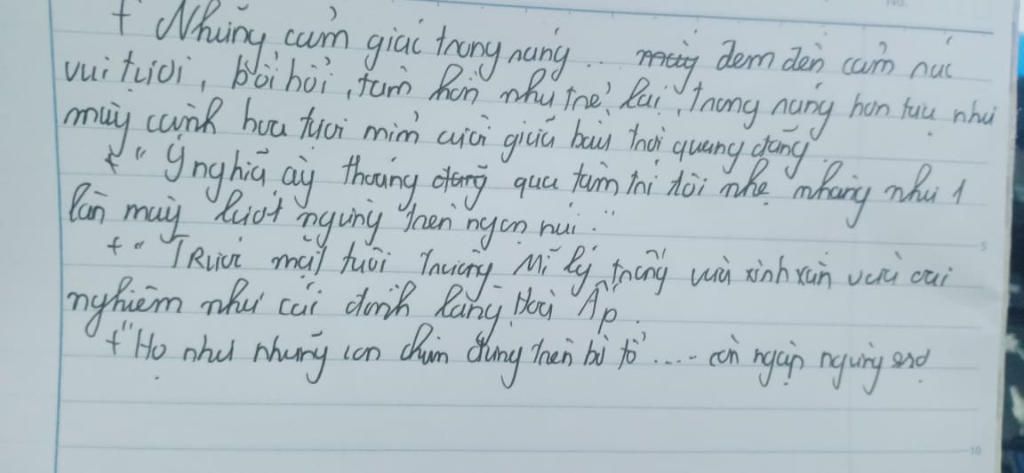 + Những cảm giác trong sáng .. mấy đem đến cảm xúc
vui tươi, bồi hồi, tâm hồn như trẻ lại, trong sáng hơn tựa như
mấy cành hoa tươi mỉm cười giữa bầu trời quang đãng.
+ " Ý nghĩ ấy thoáng qua tâm trí tôi nhẹ nhàng như 1
lần mây lướt ngang trên ngọn núi."
+ " Trước mắt tôi trường Mĩ lý trông vừa xinh xắn vừa oai
nghiêm như cái đình làng Hoà Ấp.
+ "Họ như những con chim đứng trên bờ tổ .... còn ngập ngừng sợ